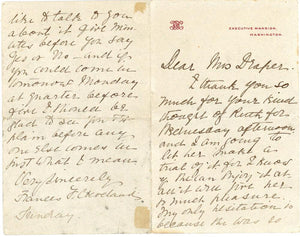 EXECUTIVE MANSION,
WASHINGTON.
Dear Mrs Draper,
I thank you so
much for your kind
thought of Ruth for
Wednesday afternoon
and I am going to
let her make a
trial of it for I know
she can enjoy it at
all it will give her
so much pleasure.
My only hesitation is
because she was so
like to talk to you
about it five min-
utes before you say
Yes or No — and if
you could come in
tomorrow Monday
at quarter before
five I should be
glad to see you &
plain before any
one else comes in
just what I mean
Very Sincerely
Frances F. Cleveland.
Sunday.